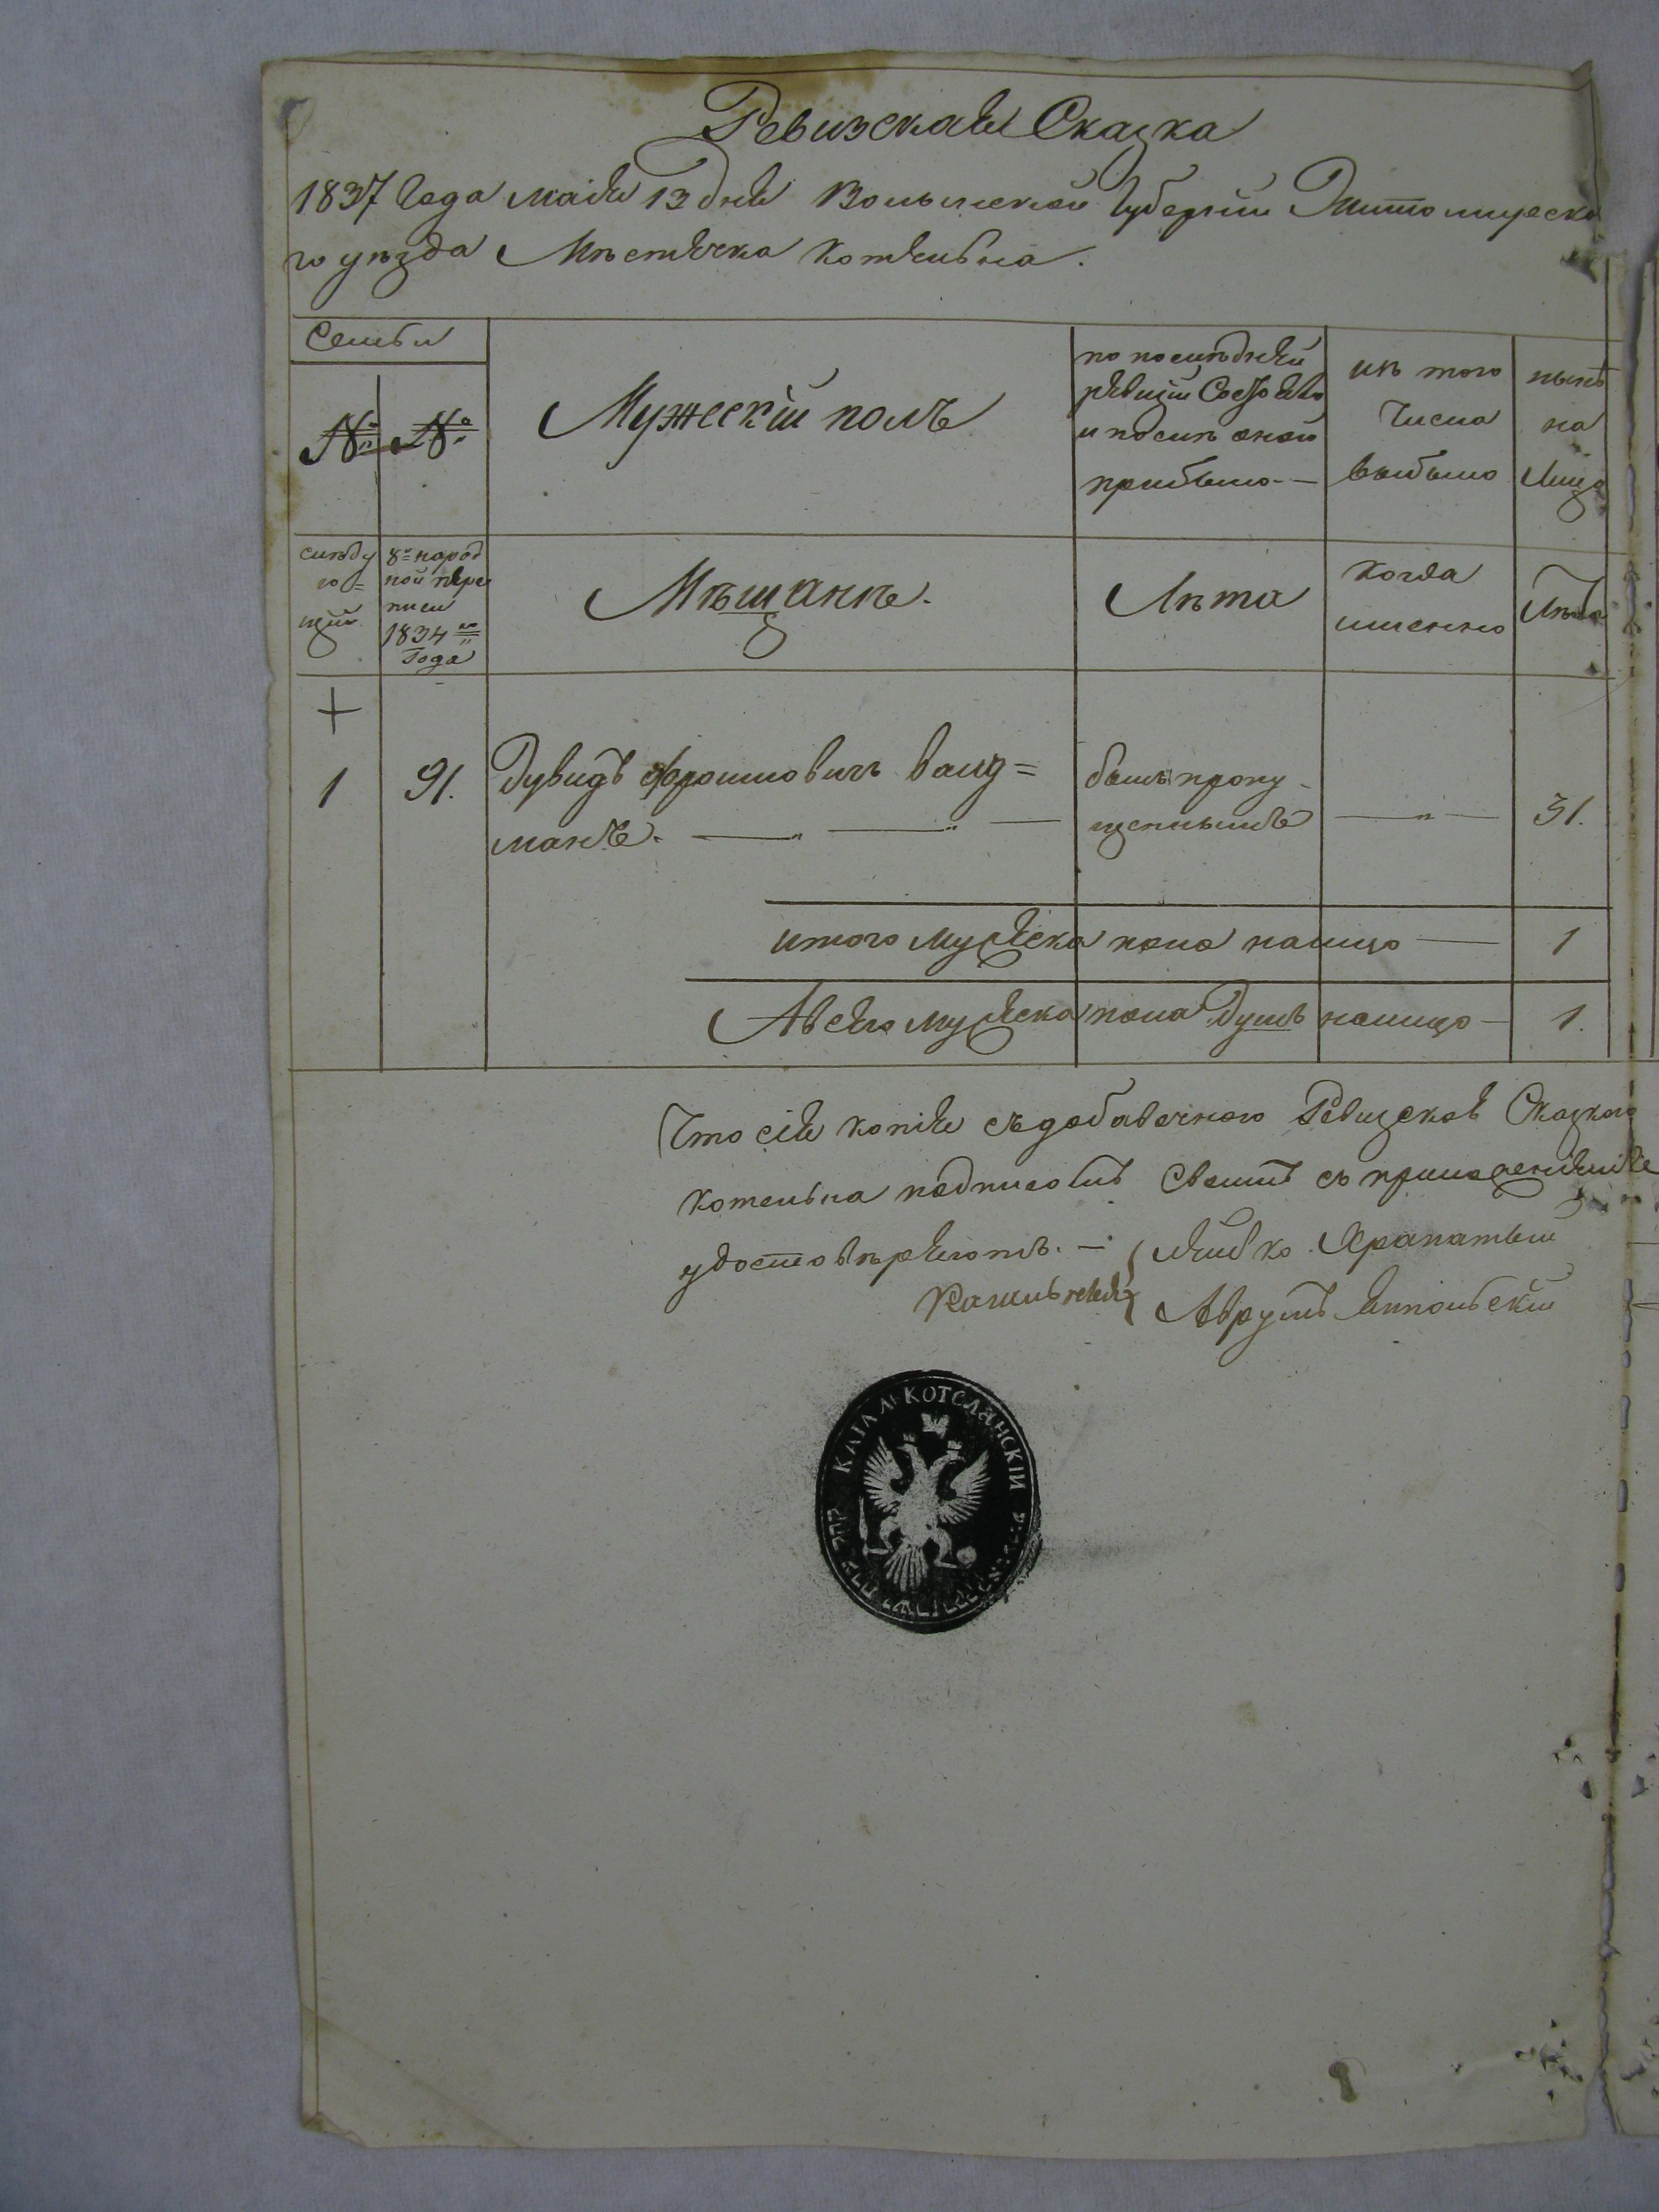 Ревизская Сказка
1837 Года мая 13 дня Волынской Губернии Житомирска
го уезда Мѣстечка Котельна.
Семьи
№ №
Мужескій полъ
по последней
ревизіи Состояло
и после оной
прибыло
изъ того
Числа
выбыло
нынѣ
на
Лицо
следу
ю=
щій
8й народ
ной пере
писи
1834го
Года
Мѣщане.
Лѣта
когда
именно
Лѣта
+
1
91.
Дувидъ Фроимовичъ Вайд=
манъ.
былъ пропу
щенымъ
31.
итого мужеска пола налицо
1
А всего мужеска пола душъ налицо
1.
Что сія копія съ добавочного Ревизской Сказкою
котельна подписомъ Своимъ съ приложеніемъ
удостовѣряютъ.
Лейбко Храпатый
Аврумъ Ямпольскій
КАГАЛЪ КОТЕЛАНСКІЙ